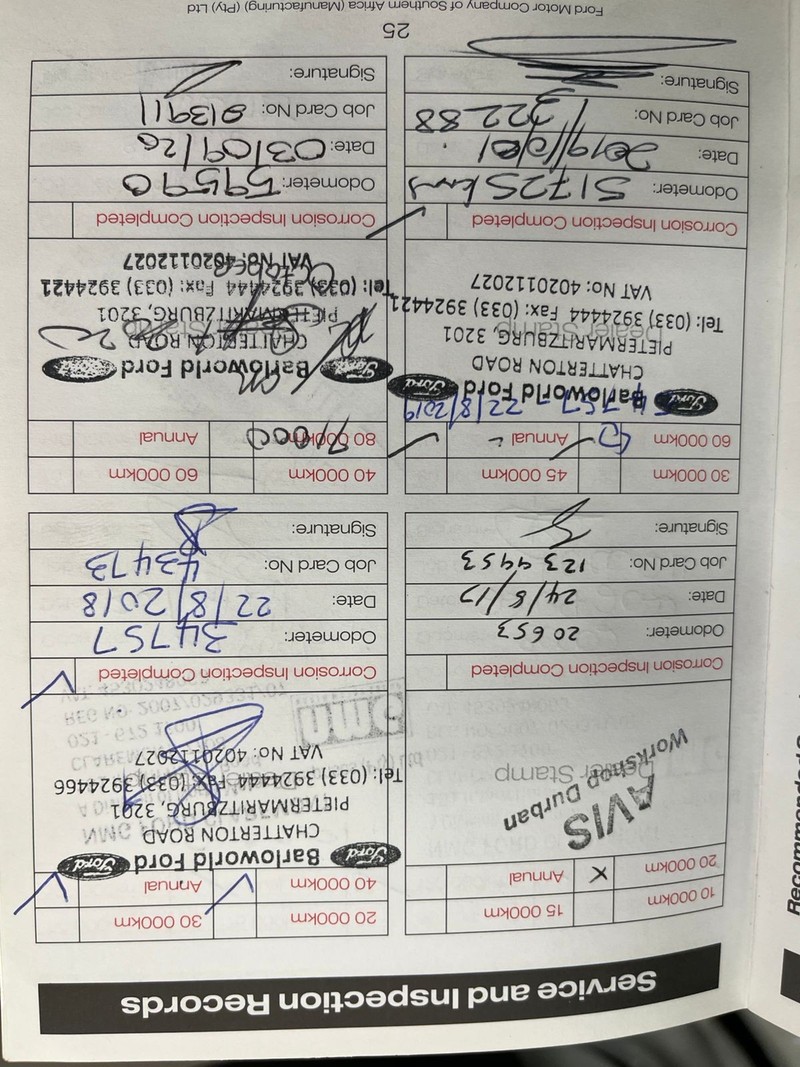 Service and Inspection Records
10 000km
15 000km
20 000km
X
Annual
AVIS
Workshop Durban
Dealer Stamp
Corrosion Inspection Completed
Odometer: 20653
Date: 24/8/17
Job Card No: 1239953
Signature:
20 000km
30 000km
40 000km
Annual
Ford Barloworld Ford Ford
CHATTERTON ROAD
PIETERMARITZBURG, 3201
Tel: (033) 3924444 Fax: (033) 3924466
VAT No: 4020112027
Corrosion Inspection Completed
Odometer: 34757
Date: 22/8/2018
Job Card No: 43473
Signature:
30 000km
45 000km
60 000km
Annual
22/8/2019
Ford Barloworld Ford Ford
CHATTERTON ROAD
PIETERMARITZBURG, 3201
Dealer Stamp
Tel: (033) 3924444 Fax: (033) 3924421
VAT No: 4020112027
Corrosion Inspection Completed
Odometer: 51725kms
Date:
Job Card No: 322288
Signature:
40 000km
60 000km
80 000km
Annual
71000
Ford Barloworld Ford
CHATTERTON ROAD
PIETERMARITZBURG, 3201
Tel: (033) 3924444 Fax: (033) 3924421
October
VAT No: 4020112027
Corrosion Inspection Completed
Odometer: 59590
Date: 03/09/20
Job Card No: 813911
Signature:
25
Ford Motor Company of Southern Africa (Manufacturing) (Pty) Ltd
Recommended